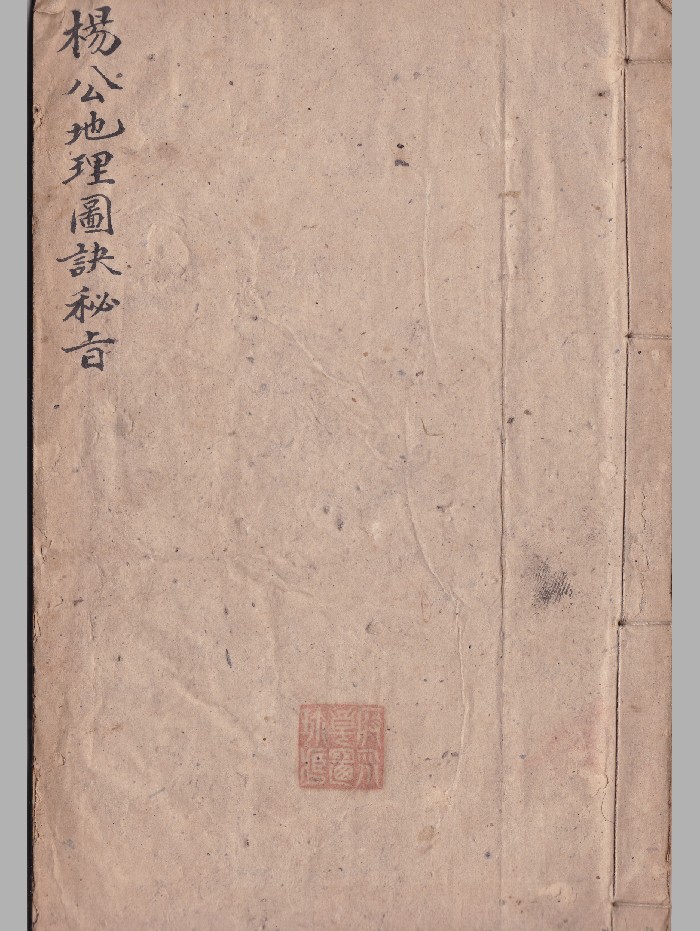 楊公地理圖訣秘旨